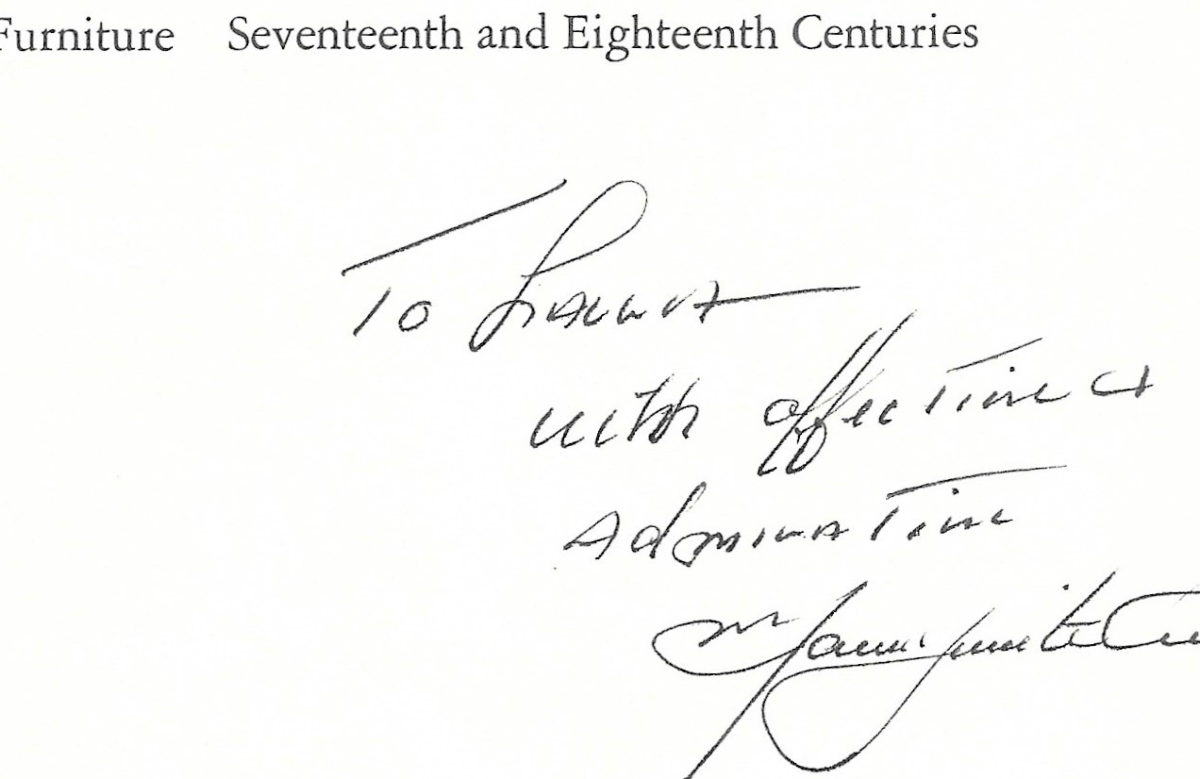 Furniture Seventeenth and Eighteenth Centuries
To Laura
with affection &
Admiration